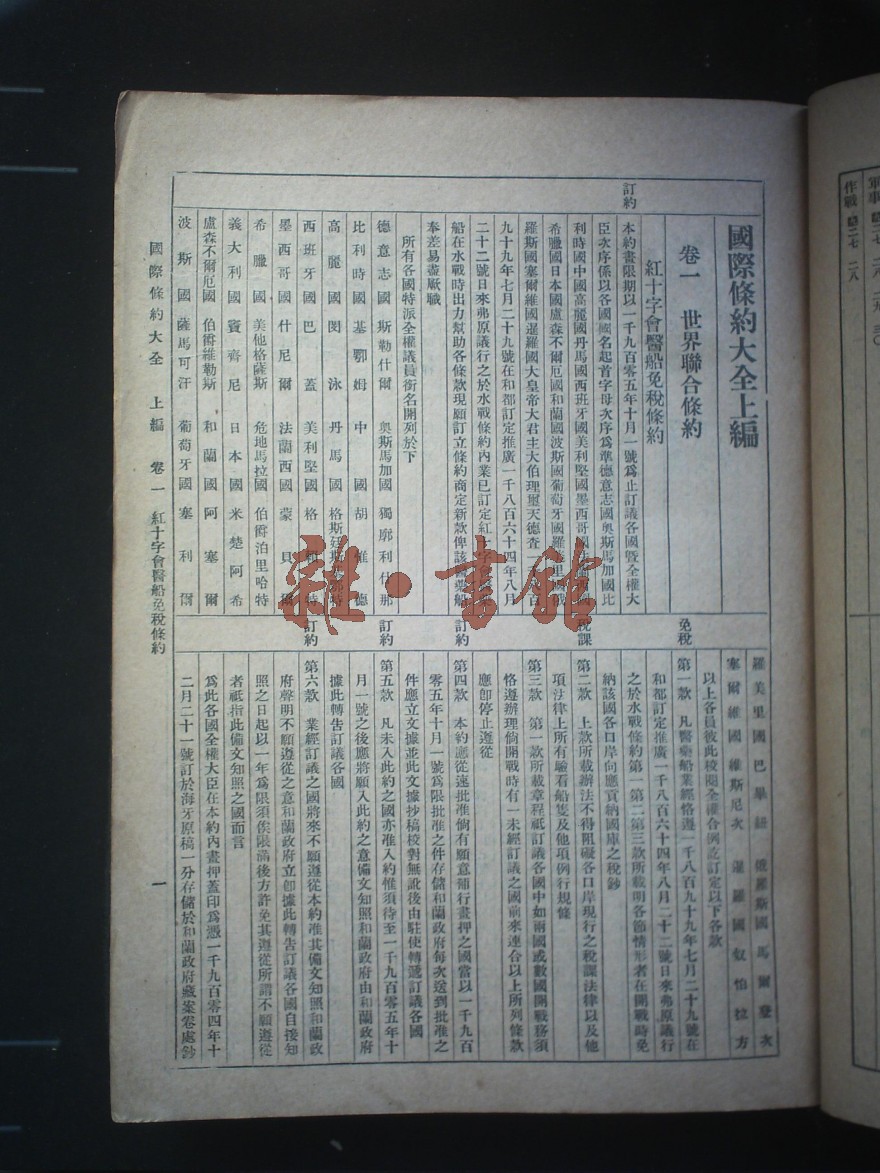 國際條約大全上編
卷一 世界聯合條約
紅十字會醫船免稅條約
訂約
本約畫限期以一千九百零五年十月一號爲止訂議各國暨全權大
臣次序係以各國國名起首字母次序爲準德意志國奧斯馬加國比
利時國中國高麗國丹馬國西班牙國美利堅國墨西哥國
希臘國日本國盧森不爾厄國和蘭國波斯國葡萄牙國羅美里國俄
羅斯國塞爾維國暹羅國大皇帝大君主大伯理璽天德查一千八百
九十九年七月二十九號在和都訂定推廣一千八百六十四年八月
二十二號日來弗原議行之於水戰條約內業已訂定紅十字會
船在水戰時出力幫助各條款現願訂立條約商定新款俾該醫藥船
奉差易盡厥職
所有各國特派全權議員銜名開列於下
德意志國斯勒什爾 奧斯馬加國獨廓利什那
比利時國基鄂姆 中國胡惟德
高麗國閔泳 丹馬國格斯廷
西班牙國巴蓋 美利堅國格 特
墨西哥國什尼爾 法蘭西國蒙貝爾
希臘國美他格薩斯 危地馬拉國伯爵泊里哈特
義大利國賓齊尼 日本國米楚阿希
盧森不爾厄國伯爵維勒斯 和蘭國阿塞爾
波斯國薩馬可汗 葡萄牙國塞利爾
羅美里國巴畢鈕 俄羅斯國馬爾 次
塞爾維國維斯尼次 暹羅國奴怕拉方
以上各員彼此校閱全權合例訂定以下各款
免稅
第一款 凡醫藥船業經恪遵一千八百九十九年七月二十九號在
和都訂定推廣一千八百六十四年八月二十二號日來弗原議行
之於水戰條約第一第二第三款所載明各節情形者在開戰時免
納該國各口岸向應貢納國庫之稅鈔
稅課
第二款 上款所載辦法不得阻礙各口岸現行之稅課法律以及他
項法律上所有驗看船隻及他項例行規條
第三款 第一款所載章程祇訂議各國中如兩國或數國開戰務須
恪遵辦理倘開戰時有一未經訂議之國前來連合以上所列條款
應卽停止遵從
訂約
第四款 本約應從速批准倘有願意補行畫押之國當以一千九百
零五年十月一號爲限批准之件存儲和蘭政府每次送到批准之
件應立文據並此文據抄稿校對無訛後由駐使轉遞訂議各國
訂約
第五款 凡未入此約之國亦准入約惟須待至一千九百零五年十
月一號之後應將願入此約之意備文知照和蘭政府由和蘭政府
據此轉告訂議各國
訂約
第六款 業經訂議之國將來不願遵從本約准其備文知照和蘭政
府聲明不願遵從之意和蘭政府立卽據此轉告訂議各國自接知
照之日起以一年爲限須俟限滿後方許免其遵從所謂不願遵從
者祇指此備文知照之國而言
爲此各國全權大臣在本約內畫押蓋印爲憑一千九百零四年十
二月二十一號訂於海牙原稿一分存儲於和蘭政府藏案卷處鈔
國際條約大全 上編 卷一 紅十字會醫船免稅條約 一
雜·書館